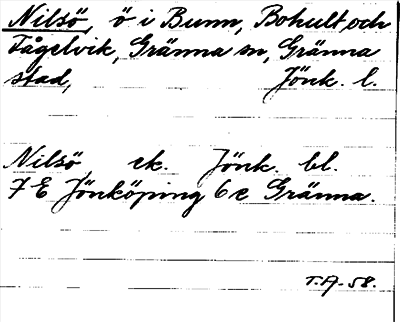 Nilsö, ö i Bunn, Bohult och
Fågelvik, Gränna sn, Gränna
stad, Jönk. l.
Nilsö, ek. Jönk. bl.
7 E Jönköping 6 e Gränna.
T.A-58.